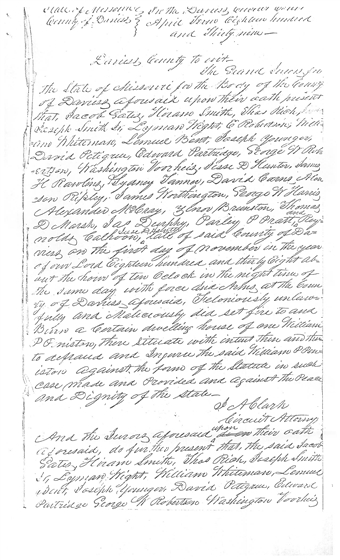 State of Missouri } In the Daviess Circuit Court
County of Daviess } April Term Eighteen hundred
and Thirty nine—
Daviess County to wit
The Grand Jurors for
the State of Missouri for the Body of the County
of Daviess aforesaid upon their oath present
that Jacob Gates, Hiram Smith, Thos Rich,
Joseph Smith Jr, Lyman Wight, E Robertson, Will-
iam Whiteman, Lemuel Bent, Joseph Younger,
David Petigrew, Edward Partridge, George W Rob-
ertson, Washington Voorheis, Jesse D Hunter, James
H Rawlins, Sydney Tanner, David Carns Alan-
son Ripley, James Worthington, George W Harris
Alexander McCray, Thomas
D Marsh, Parley P Pratt, and Rey-
nolds Calhoon, late of said County of Da-
viess on the first day of November in the year
of our Lord Eighteen hundred and thirty Eight ab-
out the hour of ten Oclock in the night time of
the same day with force and Arms, at the Coun-
ty of Daviess aforesaid, Feloniously unlaw-
fully and Maliciously did set fire to and
Burn a Certain dwelling house of one William
P Peniston, there situate with intent then and there
to defraud and Injure the said William P Pen-
iston against the form of the Statute in such
case made and Provided and against the Peace
and Dignity of the State—
J A Clark
Circuit Attorney
And the Jurors aforesaid upon their oath
aforesaid, do further present that, the said Jacob
Gates, Hiram Smith, Thos Rich, Joseph Smith
Jr, Lyman Wight, William Whiteman, Lemuel
Bent, Joseph Younger, David Petigrew, Edward
Partridge George W Robertson Washington Voorheis